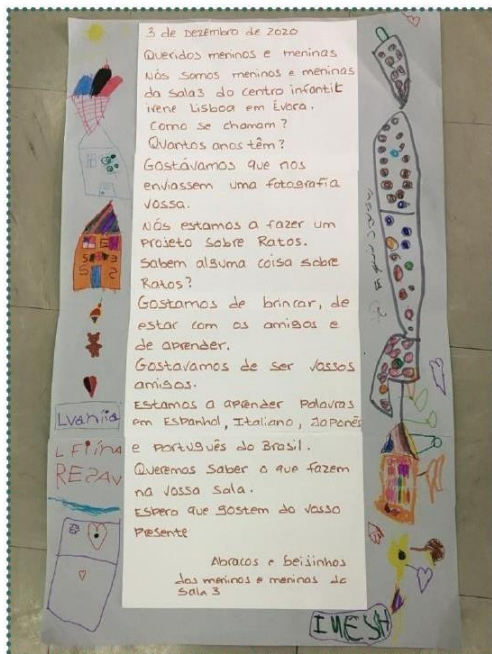 3 de Dezembro de 2020
Queridos meninos e meninas
Nós somos meninos e meninas
da Sala3 do centro infantil
irene Lisboa em Évora.
Como se chamam?
Quantos anos têm?
Gostávamos que nos
enviassem uma fotografia
vossa.
Nós estamos a fazer um
projeto sobre Ratos.
Sabem alguma coisa sobre
Ratos?
Gostamos de brincar, de
estar com os amigos e
de aprender.
Gostavamos de ser vossos
amigos.
Estamos a aprender Palavras
em Espanhol, Italiano, Japonês
e português do Brasil.
Queremos saber o que fazem
na vossa sala.
Espero que gostem do vosso
Presente
Abraços e beijinhos
dos meninos e meninas da
Sala 3
INESH